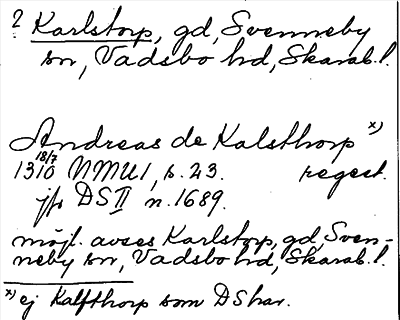 ? Karlstorp, gd, Svenneby
sn, Vadsbo hd, Skarab. l.
Andreas de Kalsthorp x)
1310 18/7 NMU1, s. 23. regest.
jfr DS II n. 1689.
möjl. avses Karlstorp, gd, Sven-
neby sn, Vadsbo hd, Skarab. l.
x) ej Kalfthorp som DS har.